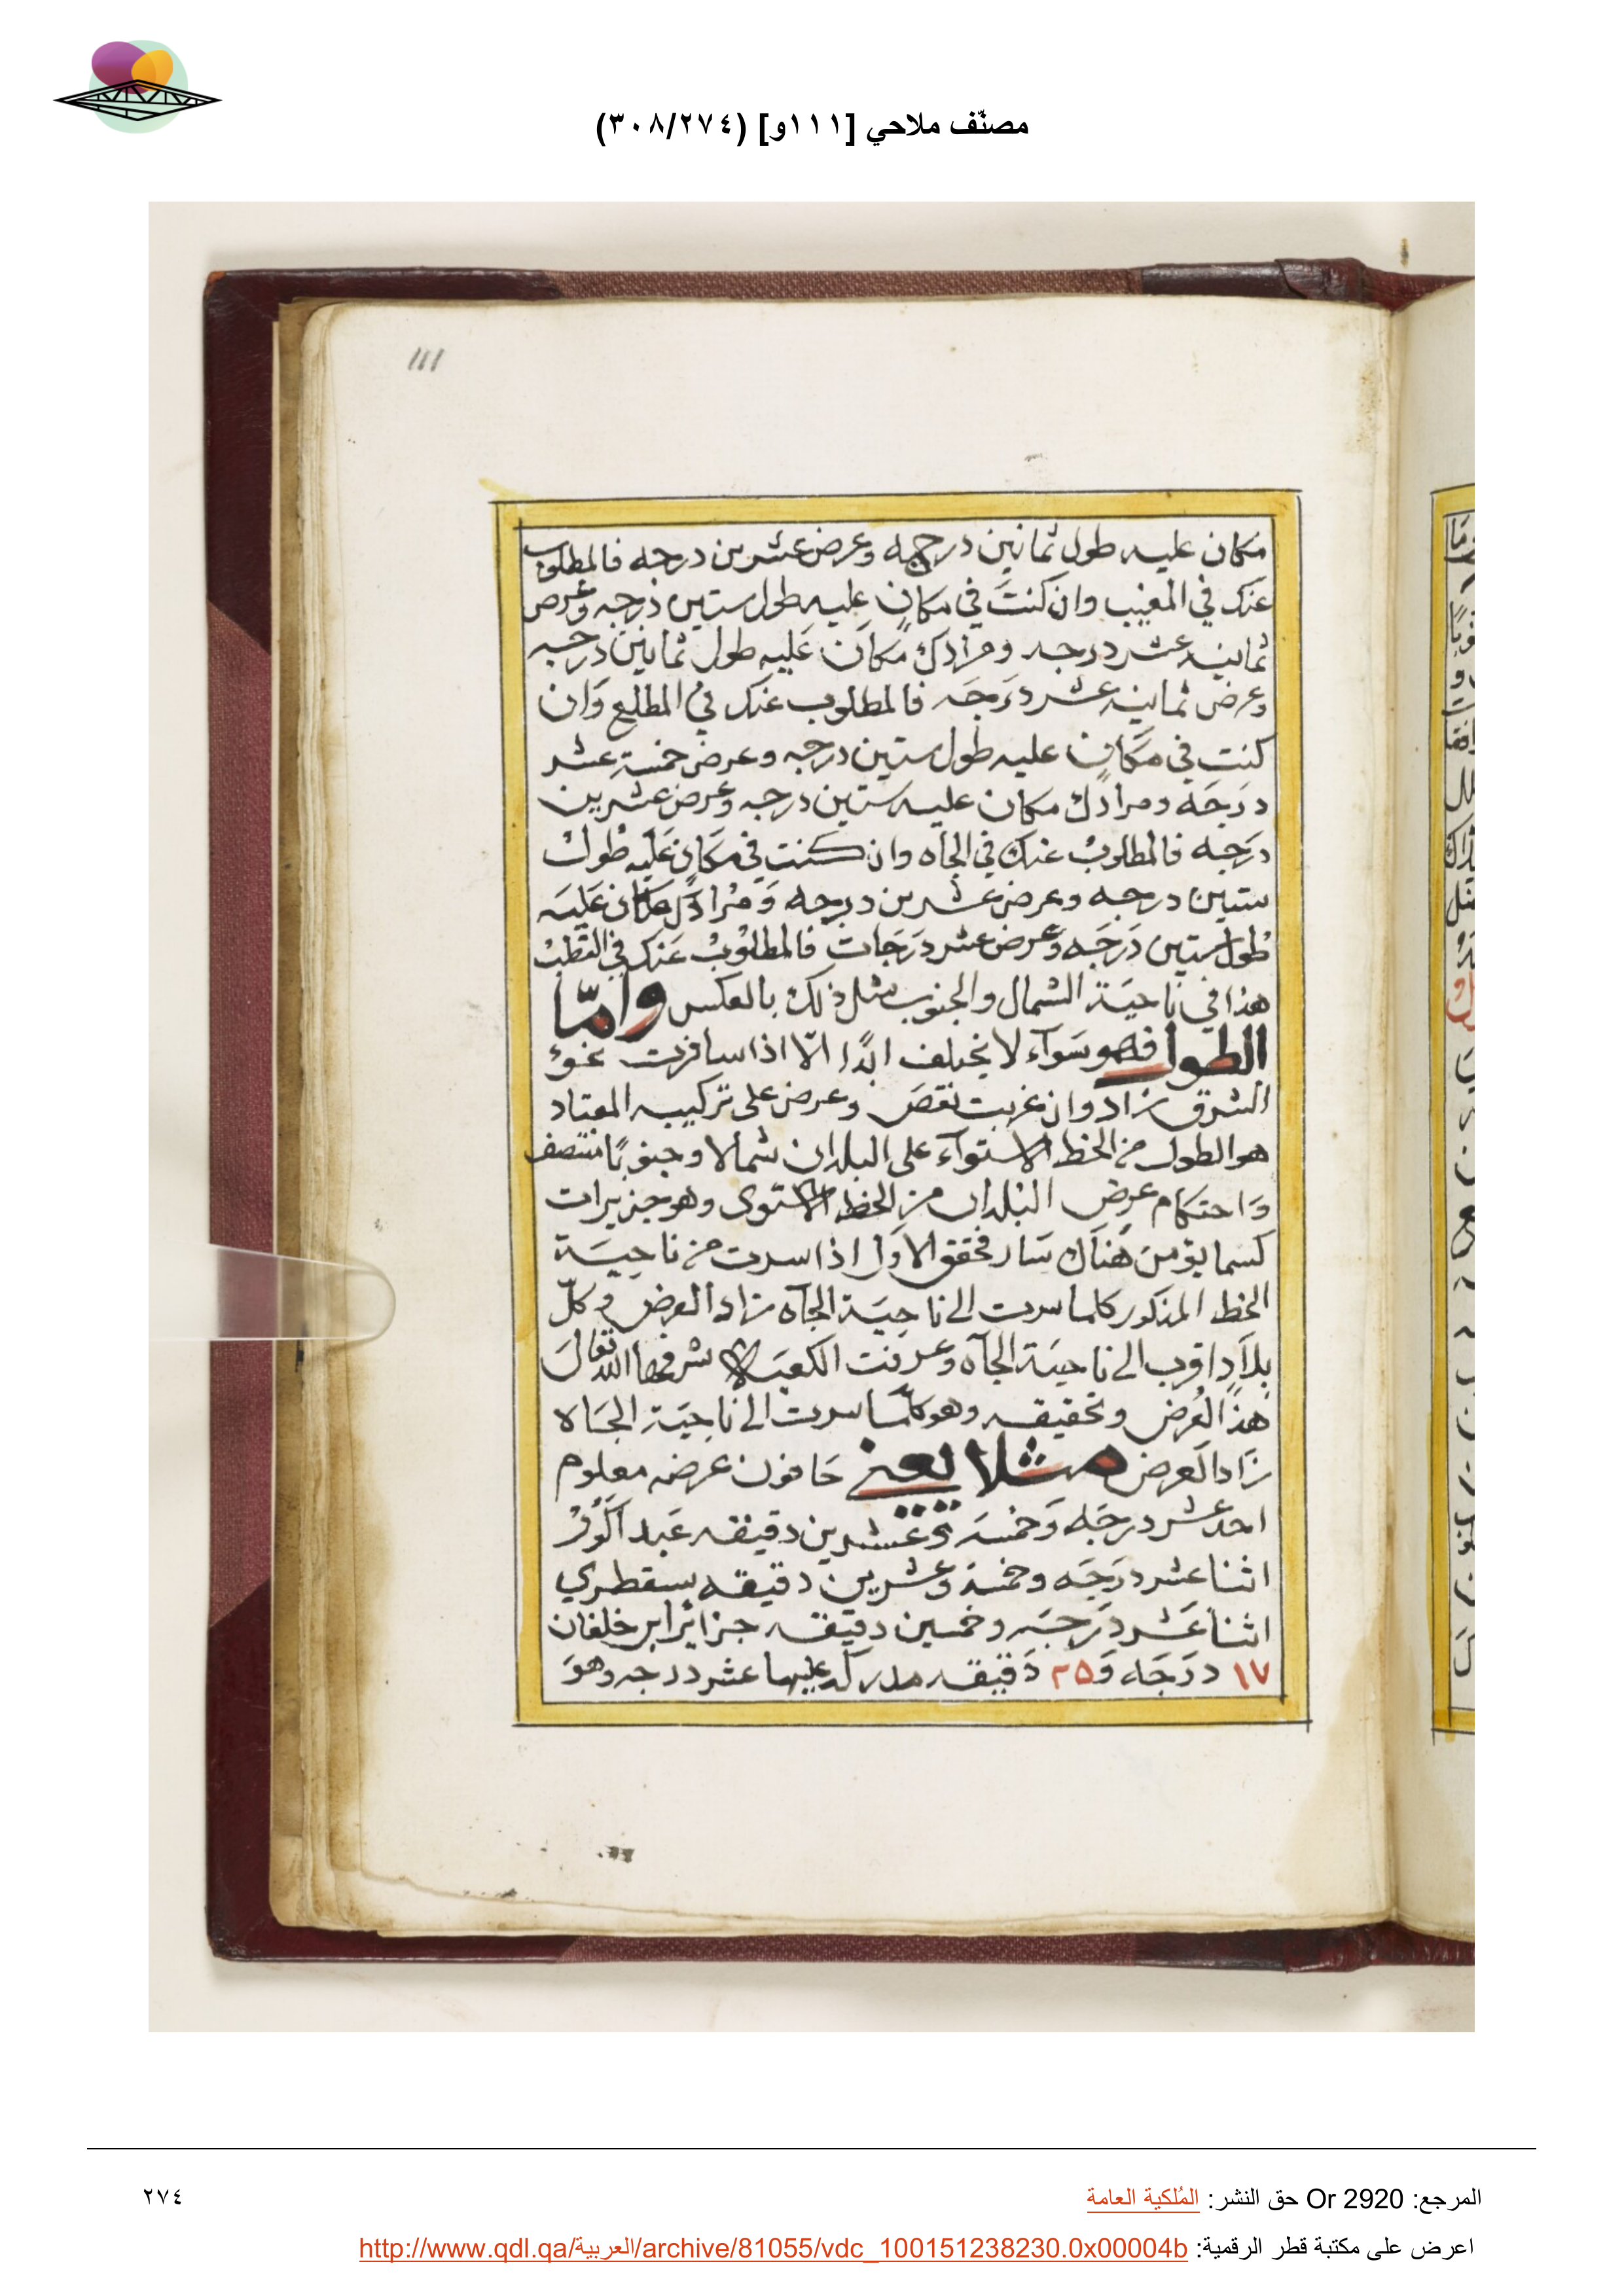 مصنّف ملاحي [١١١و] (٣٠٨/٢٧٤)
111
مكان عليه طول ثمانين درجه وعرض عشرين درجه فالمطلوب
عنك في المغيب وان كنتَ في مكانٍ عليه طول ستين درجه وعرض
ثمانيه عشر درجه ومرادك مكان عَليه طول ثمانين درجه
وعرض ثمانيه عشر دَرَجَه فالمطلوب عنك في المطلع وَان
كنت في مكانٍ عليه طول ستين درجه وعرض خمسة عشر
دَرَجَه ومرادك مكان عليه ستين درجه وعرض عشرين
درَجه فالمطلوبْ عنك في الجاه وان كنت في مكانٍ عَليه طول
ستين درجه وعرض عشرين درجه وَمُرادك مكان عَليَه
طول ستين دَرَجَه وَعرض عشر دَرَجات فالمطلوبْ عَنك في القطبْ
هذا في ناحيَة الشمال والجنوب مثل ذلك بالعكس وامّا
الطول فهو سَوآء لا يختلف ابدًا الّا اذا سافرت نحوَ
الشرق زاد وان غربت نقصَ وعرض على تركيب المعتاد
هو الطول من الخط الاستوآء على البلدان شمالا وجنوبًا منتصف
وَاحتكام عرض البلدان من الخط الاستوى وهو جزيرات
كسما يو من هُناك سَار فحقق الاول اذا سرت من ناحيَة
الخط المذكور كلما سرت الى ناحِيَة الجآه زاد العرض وكلّ
بلاَدٍ اقرب الى ناحيَة الجآه وعرفت الكعبَة شرفها الله تعالَى
هذا العُرض وتحقيقه وهو كلّمَا سرت الى ناحِيَة الجَاه
زَاد العرض مثلا يعني حَافون عرضه معلوم
احد عشر درجَه وَخمسَة وعشرين دقيقه عَبد الكُوْر
اثنا عشر دَرَجَه وخمسة وعشرين دقيقه سقطري
اثنا عَشر دَرجَه وخمسين دقيقه جزاير ابن خلفان
١٧ درَجَه وَ٢٥ دَقيقه مدركه عليها عشر درجه وهوَ
المرجع: Or 2920 حق النشر: المُلكية العامة
٢٧٤
اعرض على مكتبة قطر الرقمية: http://www.qdl.qa/العربية/archive/81055/vdc_100151238230.0x00004b